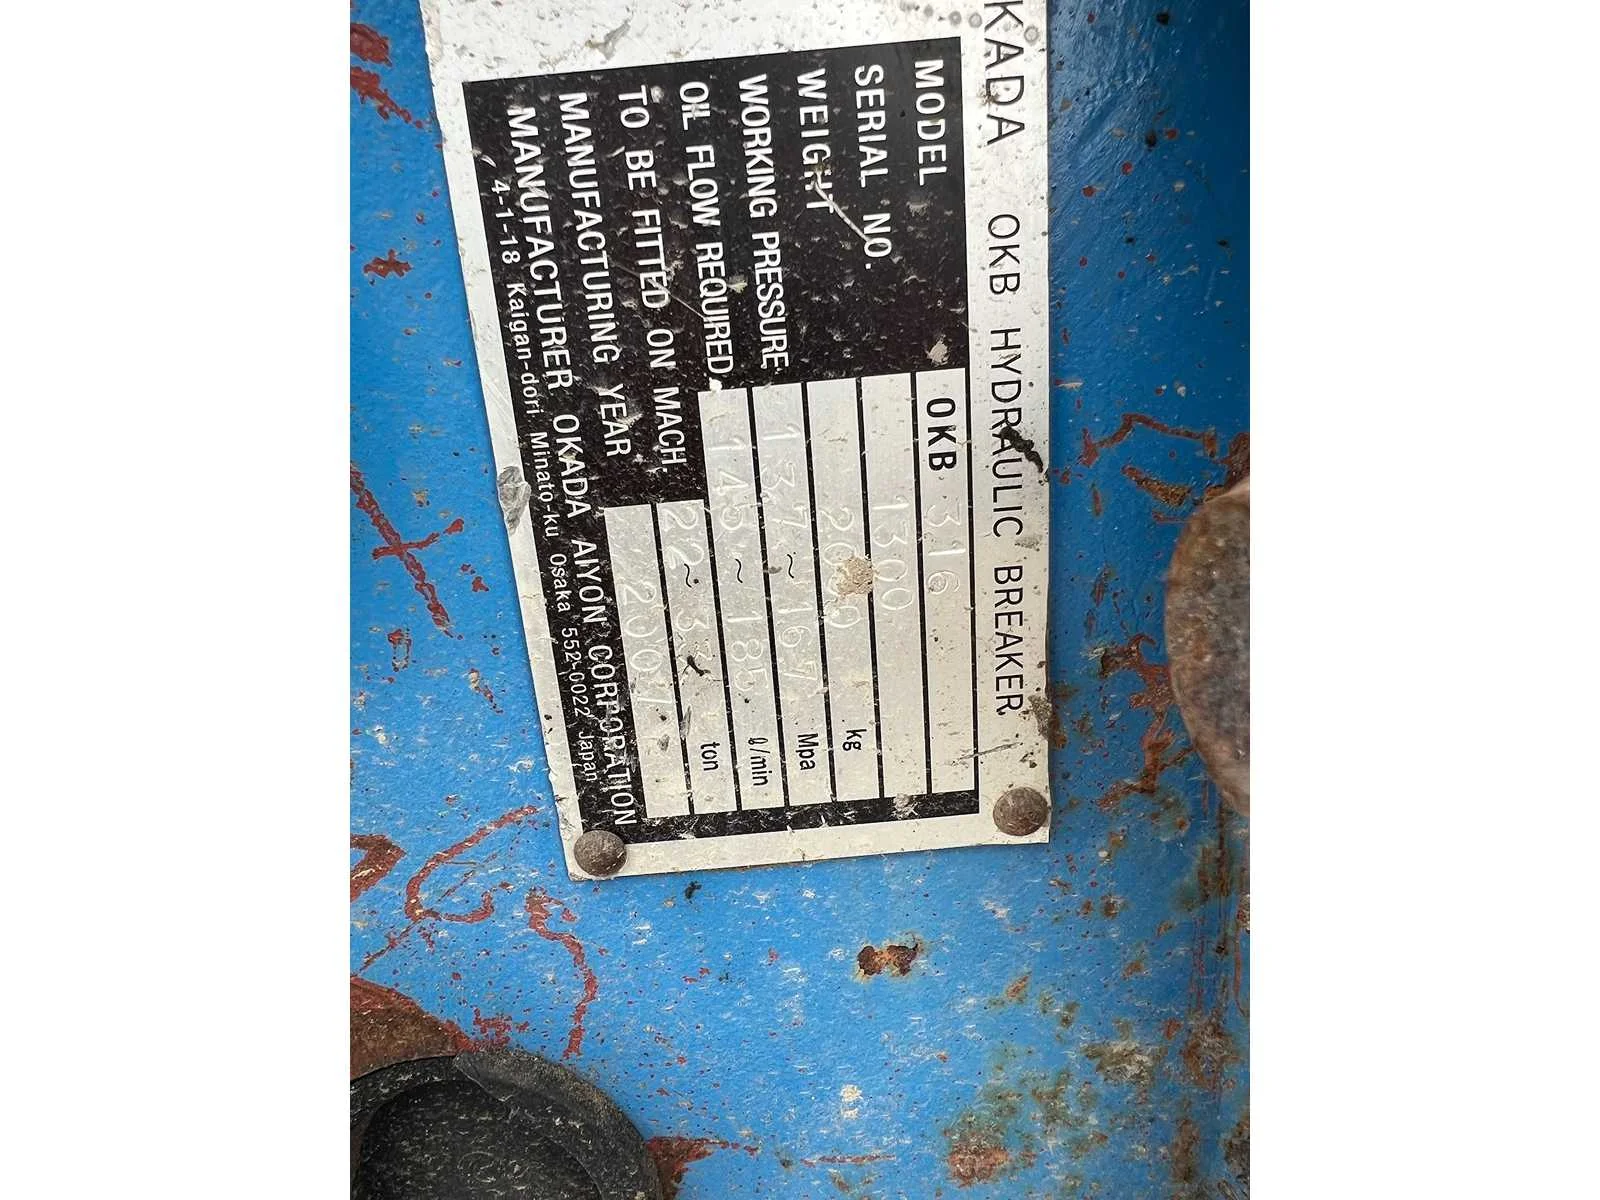 KADA OKB HYDRAULIC BREAKER
MODEL OKB 316
SERIAL NO. 1300
WEIGHT kg
WORKING PRESSURE 13.7~16.7 Mpa
OIL FLOW REQUIRED 145~185 ℓ/min
TO BE FITTED ON MACH. 22~33 ton
MANUFACTURING YEAR 2007
MANUFACTURER OKADA AIYON CORPORATION
4-1-18 Kaigan-dori Minato-ku Osaka 552-0022 Japan